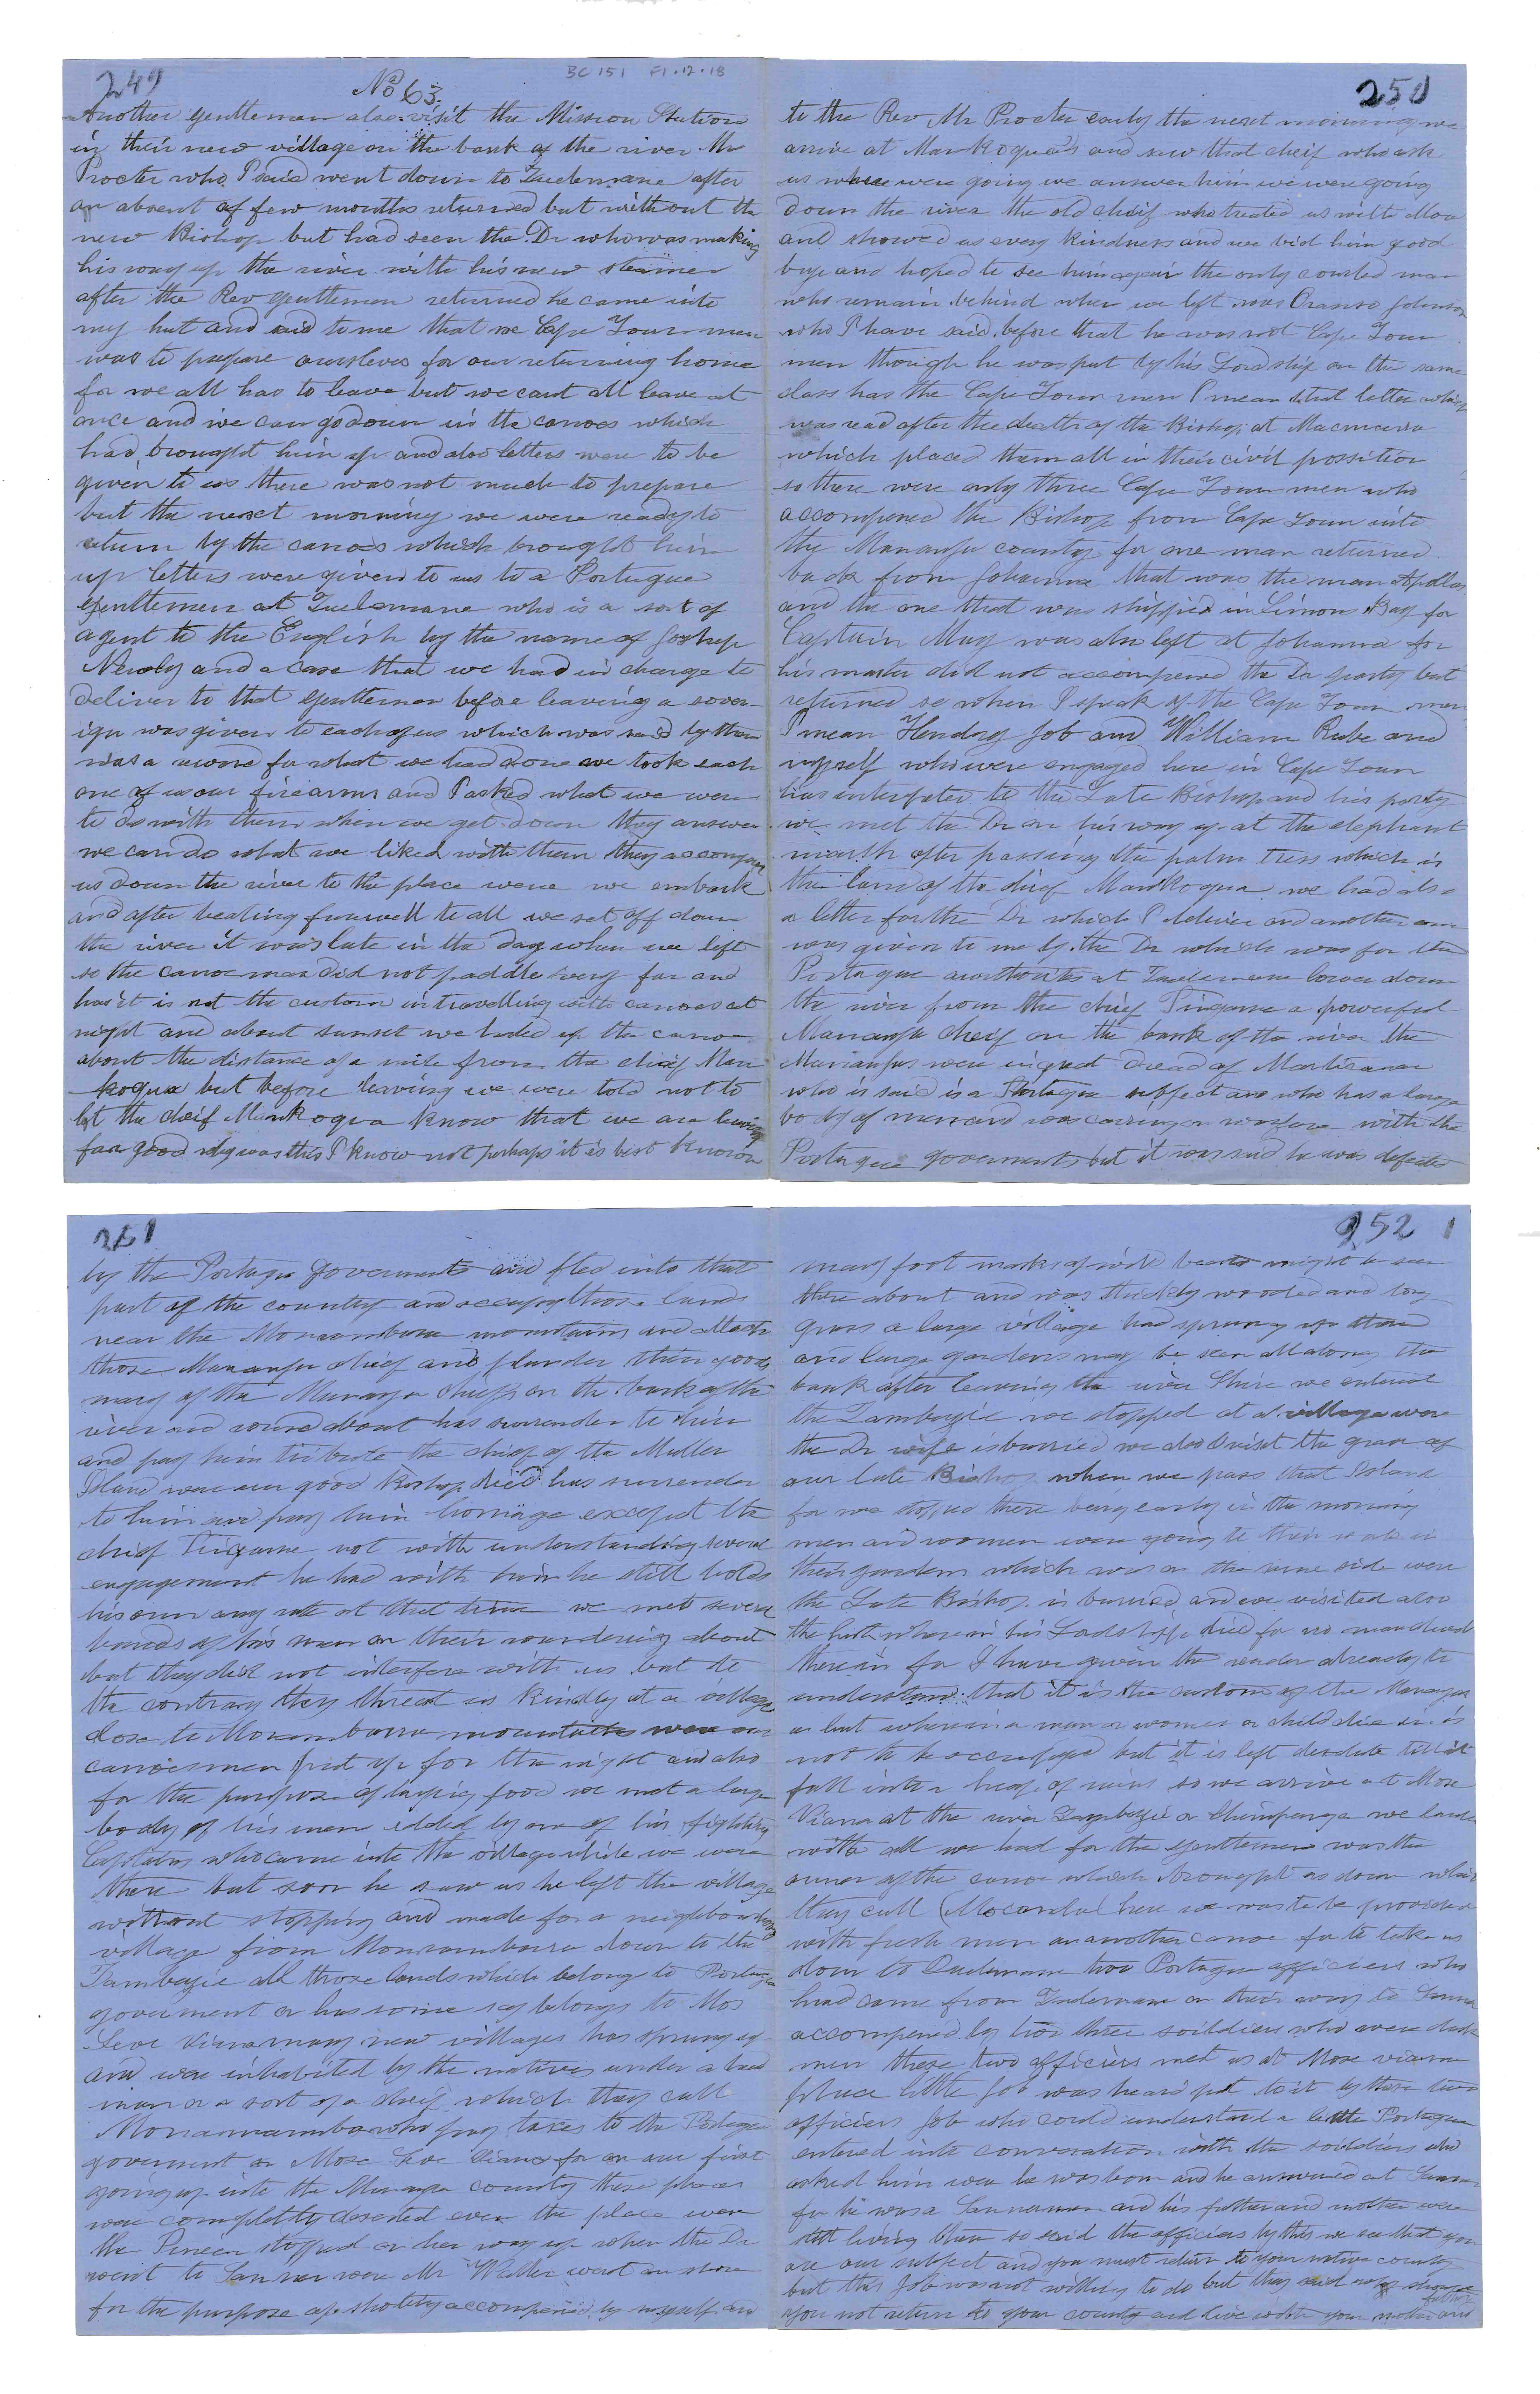 249
No 63
BC 151 F1.12.18
Another gentlemen also visit the Mission Station
in their new village on the bank of the river Mr
Procter who I said went down to Quelemane after
an absent of few months returned but without the
new Bishop but had seen the Dr who was making
his way up the river with his new steamer
after the Rev gentlemen returned he came into
my hut and said to me that we Cape Town men
was to prepare ourselves for our returning home
for we all has to leave but we cant all leave at
once and we can go down in the canoes which
had brought him up and also letters were to be
given to us there was not much to prepare
but the next morning we were ready to
return by the canoes which brought him
up letters were given to us to a Portugue
gentlemen at Quelemane who is a sort of
agent to the English by the name of
and a case that we had in charge to
deliver to that gentlemen before leaving a sover-
ign was given to each of us which was said by them
was a reward for what we had done we took each
one of us our firearms and I asked what we were
to do with them when we get down they answer
we can do what we liked with them they accompened
us down the river to the place were we embark
and after beating farewell to all we set off down
the river it was late in the day when we left
so the canoe men did not paddle very far and
has it is not the custom in travelling with canoes at
night and about sunset we the canoe
about the distance of a mile from the cheif Man
kogua but before leaving we were told not to
let the cheif Mankogua know that we are leaving
for good why was this I know not perhaps it is best known
250
to the Rev Mr Procter early the next morning we
arrive at Mankogua's and saw that cheif who ask
us where were going we answer him we were going
down the river the old cheif who treated us with
and showed us every kindness and we bid him good
bye and hoped to see him again the only man
who remain behind when we left was Johnson
who I have said before that he was not Cape Town
men though he was put by his Lordship on the same
class has the Cape Town men I mean that letter which
was read after the death of the Bishop at
which placed them all in their civil possition
so there were only three Cape Town men who
accompened the Bishop from Cape Town into
the Mananja county for one man returned
back from Johanna that was the man Apollos
and the one that was shipped in Simons Bay for
Captain May was also left at Johanna for
his master did not accompened the Dr party but
returned so when I speak of the Cape Town men
I mean Hendry Job and William Rube and
myself who were engaged here in Cape Town
has interpeter to the Late Bishop and his party
we met the Dr on his way up at the elephant
marsh after passing the palm tress which is
the land of the chief Mankogua we had also
a letter for the Dr which I deliver and another one
was given to me by the Dr which was for the
Portugue authorites at Quelemane lower down
the river from the chief Tingane a powerful
Mananja cheif on the bank of the river the
Mananjas were in great dread of
who is said is a Portugue subject and who has a large
body of men and was carring on warfare with the
Portugue goverments but it was said he was defeated
251
by the Portugue goverments and fled into that
part of the country and occupy those lands
near the mountains and attack
those Mananja chief and plunder their goods
many of the Mananja chiefs on the bank of the
river and round about has surrender to him
and pay him tribute the chief of the
Island were our good Bishop died has surrender
to him and pay him homage except the
chief Tingane not with understanding several
engagement he had with him he still holds
his own any rate at that time we met several
bands of his men on their wandering about
but they did not interfere with us but to
the contrary they threat us kindly at a village
close to mountains were our
canoesmen put up for the night and also
for the purpose of buying food we met a large
body of his men by one of his fighting
Captains who came into the village while we were
there but soon he saw us he left the village
without stopping and made for a neighbouring
village from down to the
Zambezie all those lands which belong to Portugue
goverment or has some say belongs to Mos
many new villages has sprung up
and were inhabited by the natives under a head
man or a sort of a cheif which they call
who pay taxes to the Portugue
goverment or for on our first
going up into the Mananja county these places
were completly deserted even the place were
the Pioneer stopped on her way up when the Dr
went to were Mr Waller went on shore
for the purpose of shoting accompened by myself and
252 1
many foot marks of wild beasts might be seen
there about and was thickly wooded and long
grass a large village had sprung up there
and large gardens may be seen all along the
bank after leaving the river Shire we entered
the Zambezie we stopped at a village were
the Dr wife is burried we also visit the grave of
our late Bishop when we pass that Island
for we stopped there being early in the morning
men and women were going to their work in
their gardens which was on the same side were
the Late Bishop is burried and we visited also
the hut wherein his Lordship died for no man dwells
therein for I have given the reader already to
understand that it is the custom of the Mananja
a hut wherein a man or women or child die in is
not to be occupyed but it is left desolate till it
fall into a heap of ruins so we arrive at
at the river Zambezie or we landed
with all we had for the gentlemen was the
owner of the canoe which brought us down which
they call here we was to be provided
with fresh men an another canoe for to take us
down to Quelemane two Portugue officiers who
had come from Quelemane on their way to Senna
accompened by two three soildiers who were dark
men these two officiers met us at
place little Job was heard put to it by these two
officiers Job who could understand a little Portugue
entered into conversation with the soildiers who
asked him were he was born and he answered at Senna
for he was a Sennaman and his father and mother were
still living then so said the officiers by this we see that you
are our subject and you must return to your native county
but this Job was not willing to do but they said
you not return to your county and live with your mother and
father